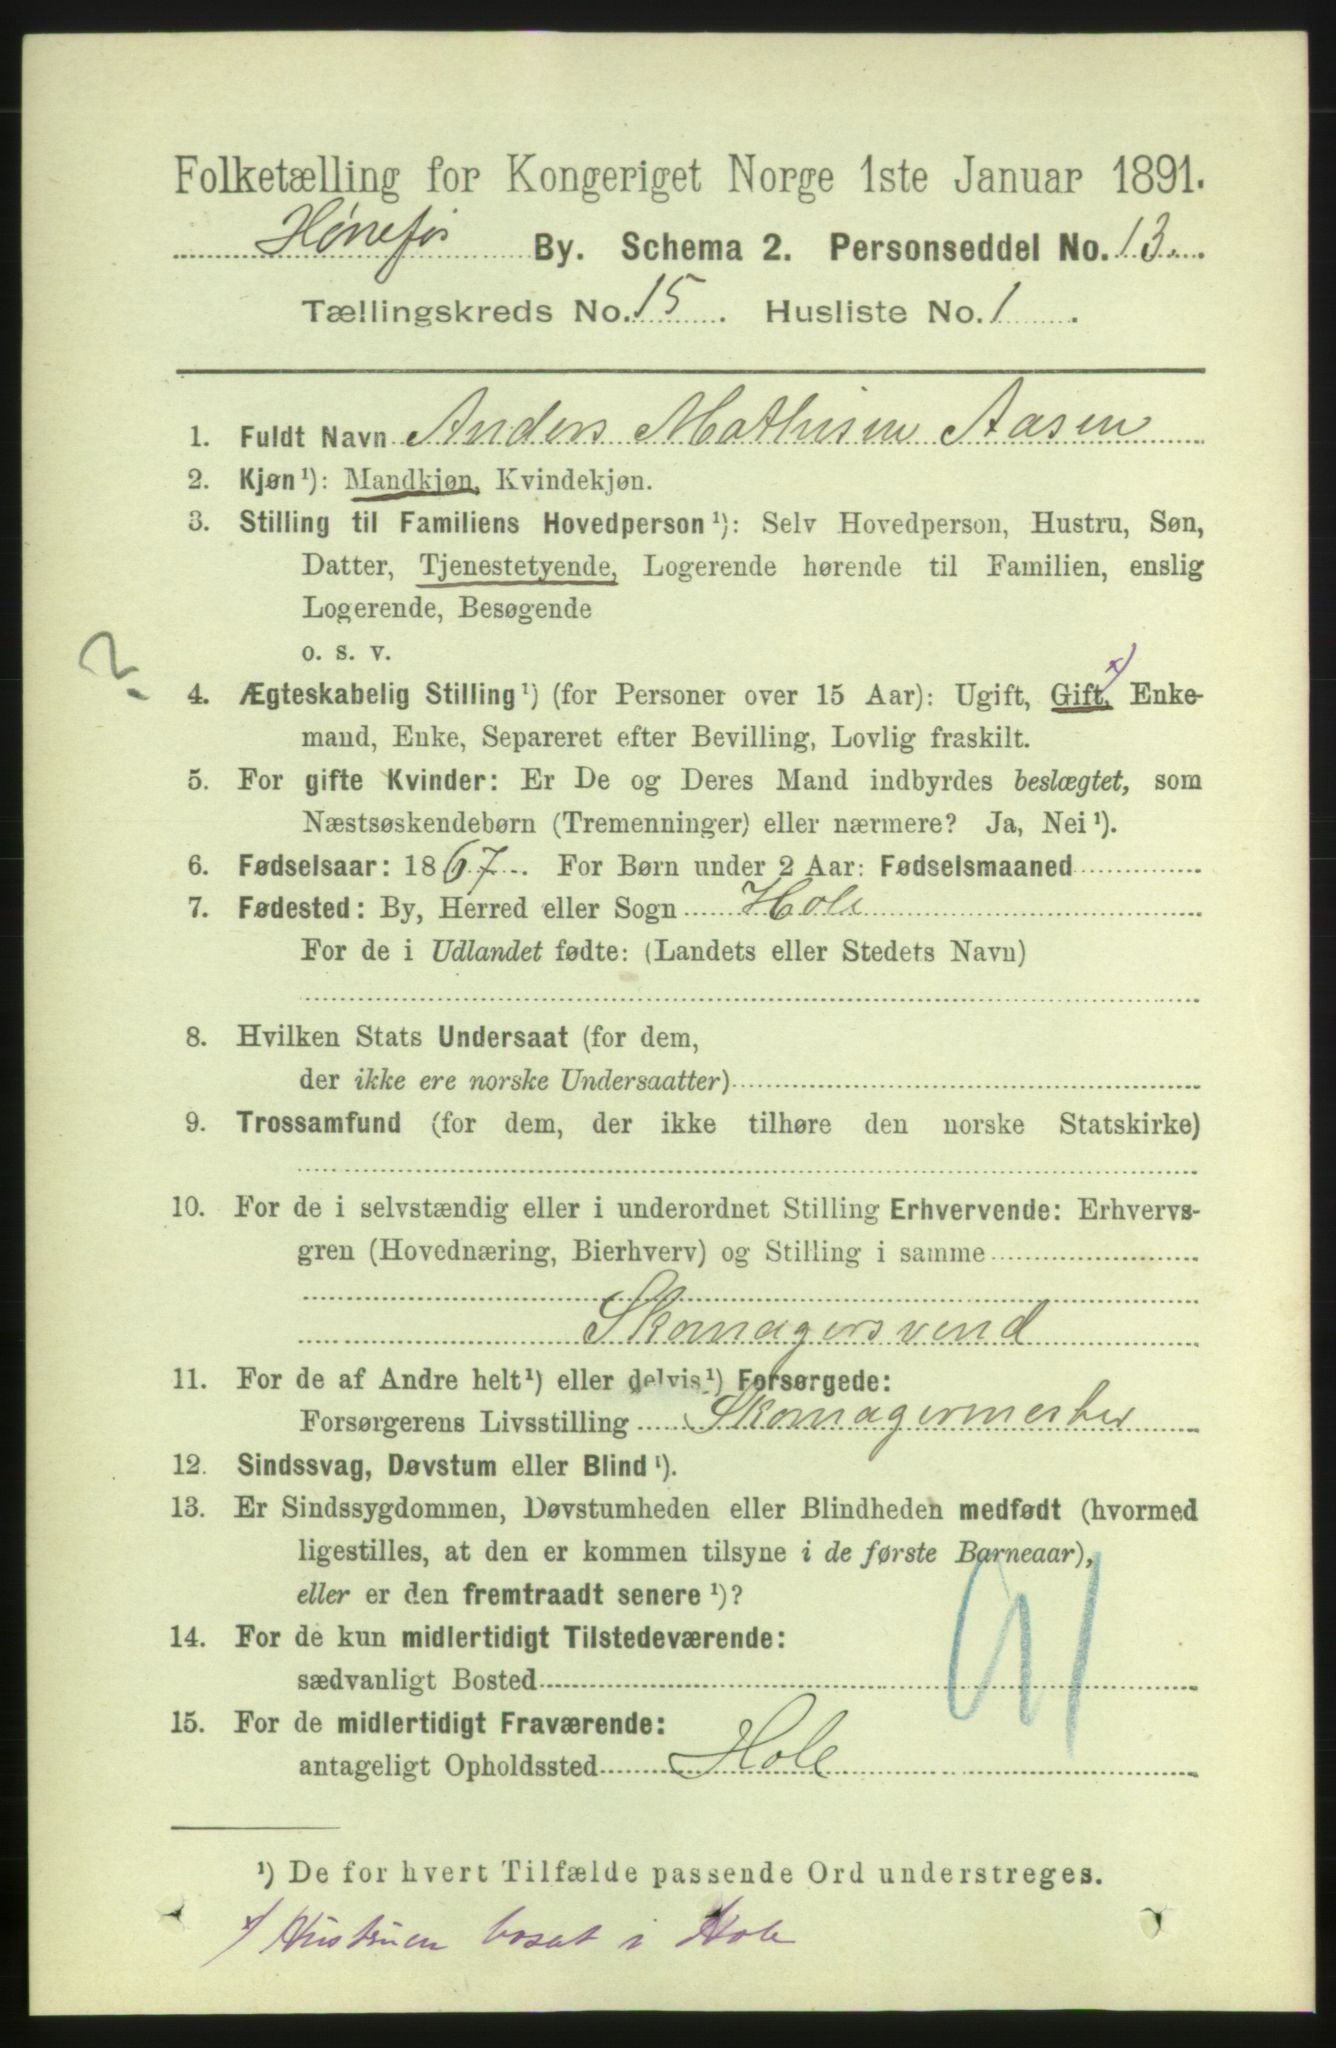 Folketælling for Kongeriget Norge 1ste Januar 1891.
Hønefos By. Schema 2. Personseddel No. 13.
Tællingskreds No. 15. Husliste No. 1.
1. Fuldt Navn Anders Mathisen Aasen
2. Kjøn¹): Mandkjøn, Kvindekjøn.
3. Stilling til Familiens Hovedperson¹): Selv Hovedperson, Hustru, Søn,
Datter, Tjenestetyende, Logerende hørende til Familien, enslig
Logerende, Besøgende
o. s. v.
?
4. Ægteskabelig Stilling¹) (for Personer over 15 Aar): Ugift, Gift, ˣ) Enke-
mand, Enke, Separeret efter Bevilling, Lovlig fraskilt.
5. For gifte Kvinder: Er De og Deres Mand indbyrdes beslægtet, som
Næstsøskendebørn (Tremenninger) eller nærmere? Ja, Nei¹).
6. Fødselsaar: 1867. For Børn under 2 Aar: Fødselsmaaned
7. Fødested: By, Herred eller Sogn Hole
For de i Udlandet fødte: (Landets eller Stedets Navn)
8. Hvilken Stats Undersaat (for dem,
der ikke ere norske Undersaatter)
9. Trossamfund (for dem, der ikke tilhøre den norske Statskirke)
10. For de i selvstændig eller i underordnet Stilling Erhvervende: Erhvervs-
gren (Hovednæring, Bierhverv) og Stilling i samme
Skomagersvend
11. For de af Andre helt¹) eller delvis¹) Forsørgede:
Forsørgerens Livsstilling Skomagermester
12. Sindssvag, Døvstum eller Blind¹).
13. Er Sindssygdommen, Døvstumheden eller Blindheden medfødt (hvormed
ligestilles, at den er kommen tilsyne i de første Barneaar),
eller er den fremtraadt senere¹)?
14. For de kun midlertidigt Tilstedeværende:
sædvanligt Bosted
15. For de midlertidigt Fraværende:
antageligt Opholdssted Hole
¹) De for hvert Tilfælde passende Ord understreges.
ˣ) Hustruen bosat i Hole